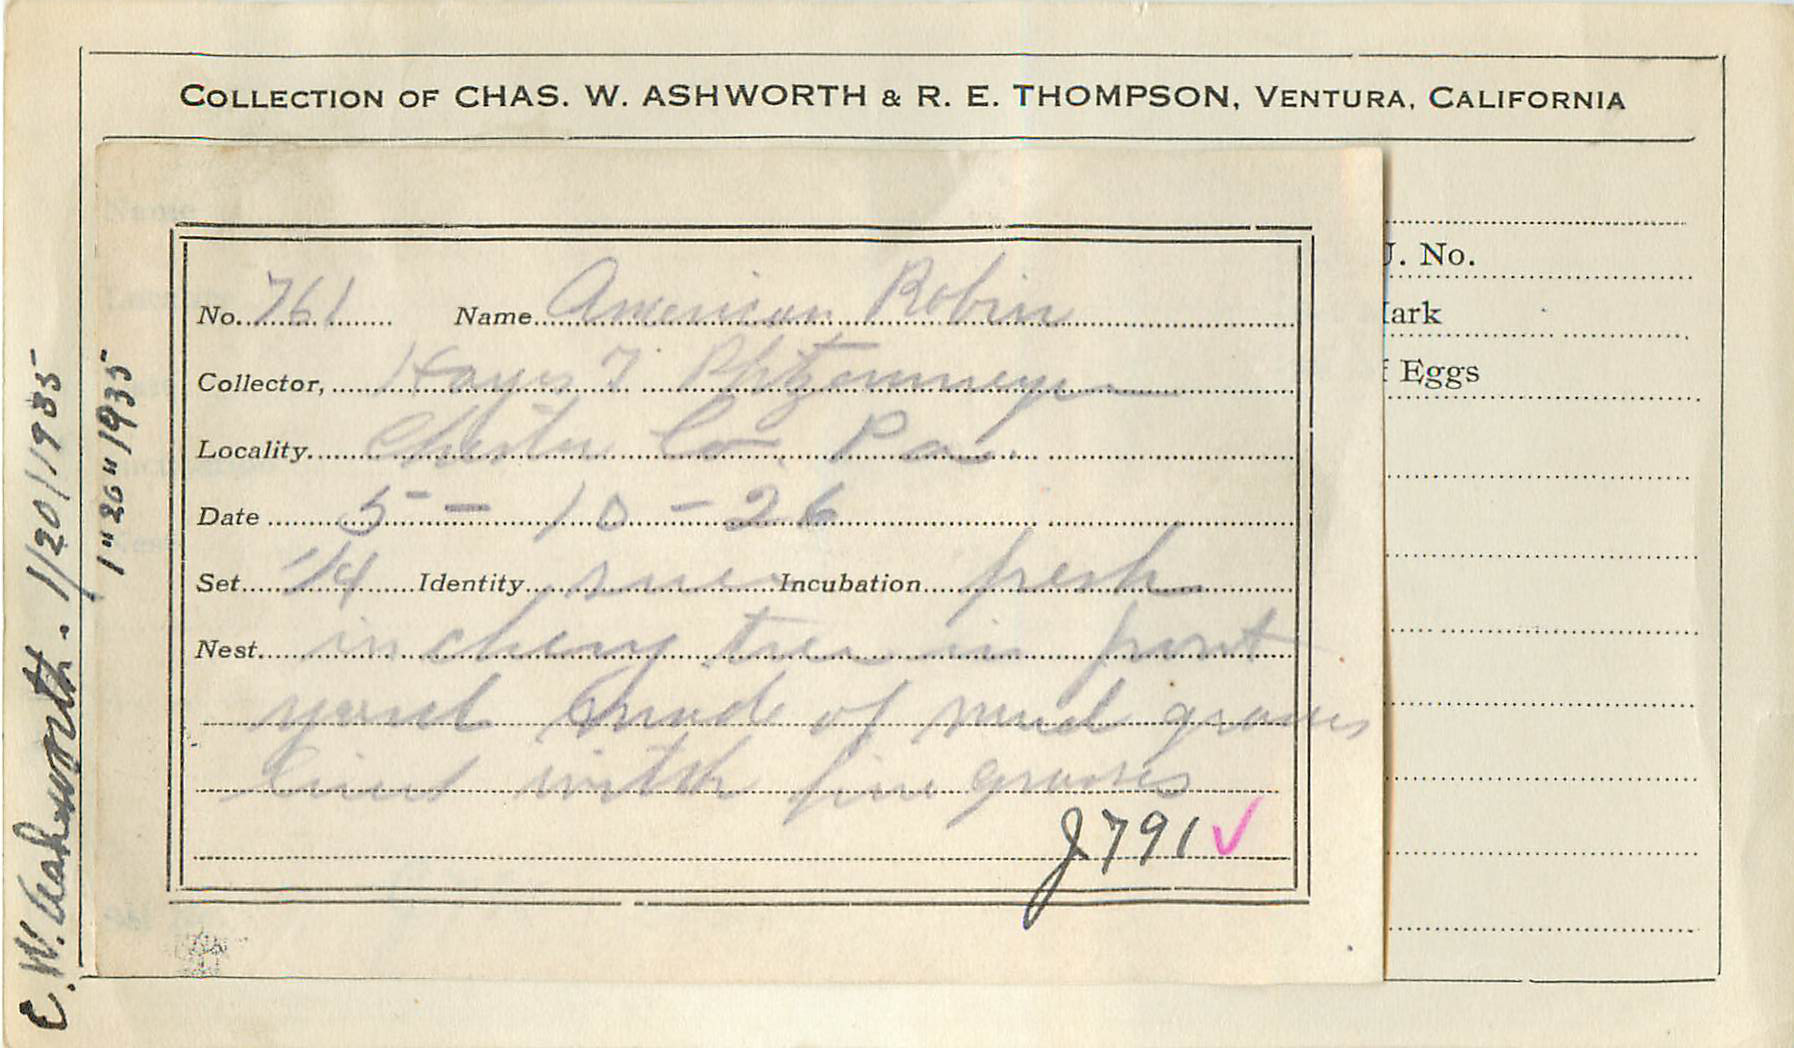 COLLECTION OF CHAS. W. ASHWORTH & R. E. THOMPSON, VENTURA, CALIFORNIA
J. No.
Mark
f Eggs
No. 761 Name American Robin
Collector, Hayes T
Locality. Chester Co. Pa.
Date 5 - 10 - 26
Set 1/4 Identity sure Incubation fresh
Nest. in cherry tree in front
yard made of mud grasses
lined with fine grasses
J791✓
C. W. Ashworth. 1/20/1935
1"20"1935